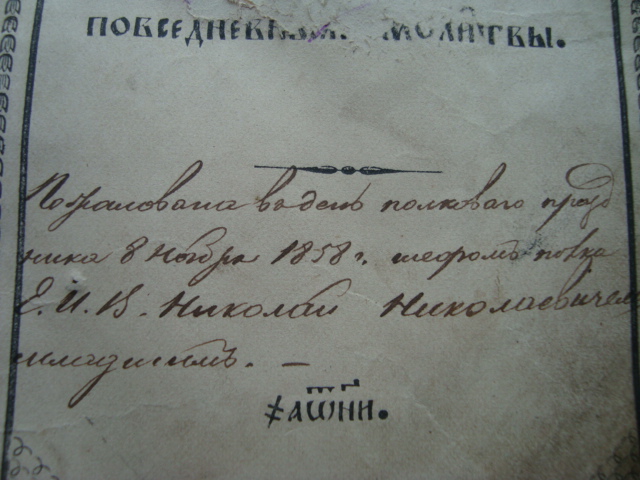 ПОВСЕДНЕВНЫѦ МОЛИ҃ТВЫ.
Пожалована въ день полковаго празд
ника 8 Ноября 1858 г. шефомъ полка
Е. И. В. Николай Николаевичемъ
младшимъ. —
҂АѾНИ.